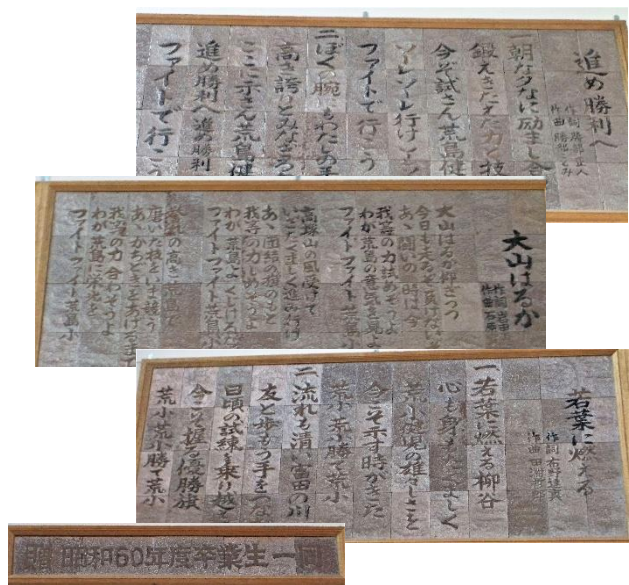 進め勝利へ
作詞 勝部
作曲 勝部
一朝な夕なに励まし合
鍛えきたえた力と技
今ぞ試さん荒島健
ソーレソーレ行け
ファイトで行こう
二ぼくの腕にもわたしの
高き誇りとみなぎる
ここに示さん荒島健
進め勝利へ進め勝利
ファイトで行こう
大山はるか
作詞 岩田
作曲 石原
大山はるか仰ぎつつ
今日も走るぞ負けないぞ
あゝ闘いの時は今
我等の力試めそうよ
わが荒島の意気を見よ
ファイトファイト荒島小
高塚山の風受けて
いざたくましく進み行け
あゝ団結の旗のもと
我等の力しめそうよ
わが荒島よくしけろだ
ファイトファイト荒島小
の高き荒島で
磨いた技をいま競う
あゝかちどきをあげ
我等の力合わそうよ
わが荒島に栄光を
ファイトファイト荒島小
若葉に燃える
作詞
作曲 田
一若葉に燃える柳谷
心も身もたくましく
荒小健児の雄々しさを
今こそ示す時がきた
荒小荒小勝て荒小
二流れも清い富田の川
友と歩もう手をつな
日頃の試練を乗り越え
今こそ握る優勝旗
荒小荒小勝て荒小
贈 昭和60年度卒業生一同